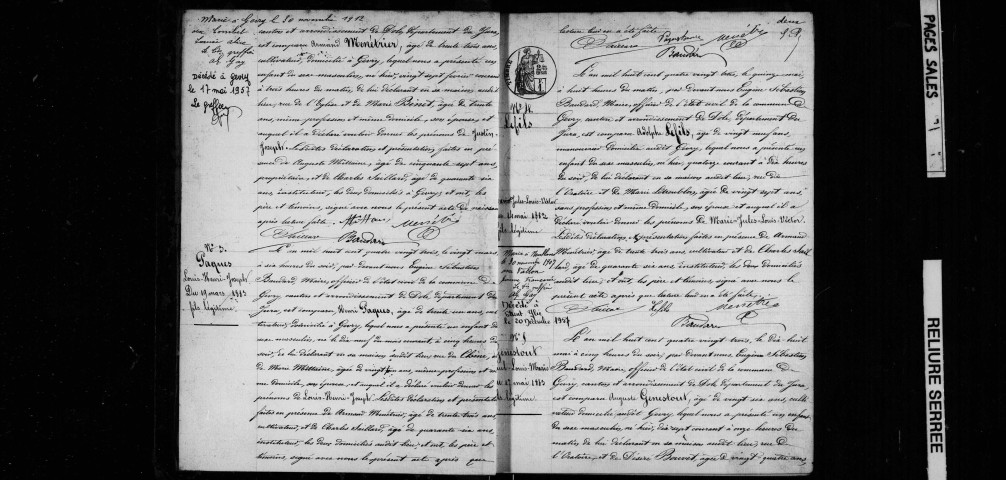 Marié à Gevry le 30 novembre 1912
Décédé à Gevry
le 17 mai 1957
Le greffier
canton et arrondissement de Dole, département du Jura,
est comparu Armand Menétrier, âgé de trente trois ans,
cultivateur, domicilié à Gevry, lequel nous a présenté un
enfant du sexe masculin, né hier, vingt sept février courant
à trois heures du matin, de lui déclarant en sa maison audit
lieu, rue de l'Eglise et de Marie Boisset, âgée de trente
ans, même profession et même domicile, son épouse, et
auquel il a déclaré vouloir donner les prénoms de Justin-
Joseph. Lesdites déclaration et présentation faites en pré-
sence de Auguste Milleaine, âgé de cinquante sept ans,
propriétaire, et de Charles Saillard, âgé de quarante six
ans, instituteur, les deux domiciliés à Gevry, et ont, les
père et témoins, signé avec nous le présent acte de naissance
après lecture faite.
Baudard
N° 3.
Paques
Louis-Henri-Joseph
Du 19 mars 1883
fils légitime.
L'an mil huit cent quatre vingt trois, le vingt mars,
à six heures du soir, par devant nous Eugène Sébastien
Baudard, Maire, officier de l'état civil de la commune de
Gevry, canton et arrondissement de Dole, département du
Jura, est comparu, Henri Paques, âgé de trente un ans, cul-
tivateur, domicilié à Gevry, lequel nous a présenté un enfant du
sexe masculin, né le dix neuf de mois courant, à cinq heures du
soir, de lui déclarant en sa maison audit lieu, rue du Chêne, et
de Marie Milleaine, âgée de vingt ans, même profession et mê-
me domicile, son épouse, et auquel il a déclaré vouloir donner les
prénoms de Louis-Henri-Joseph. Lesdites déclaration et présentation
faites en présence de Armand Menétrier, âgé de trente trois ans,
cultivateur, et de Charles Saillard, âgé de quarante six ans,
instituteur, les deux domiciliés audit lieu, et ont, les père et
témoins, signé avec nous le présent acte après que
deux
lecture leur en a été faite.
Baudard
N° 4.
Lefils
Marie-Jules-Louis-Victor
14 mai 1883
fils légitime
20 novembre 1907
Décédé à
le 20 octobre 1957
L'an mil huit cent quatre vingt trois, le quinze mai,
à huit heures du matin, par devant nous Eugène Sébastien
Baudard, Maire, officier de l'état civil de la commune de
Gevry, canton et arrondissement de Dole, département du
Jura, est comparu Adolphe Lefils, âgé de vingt neuf ans,
manouvrier, domicilié audit Gevry, lequel nous a présenté un
enfant du sexe masculin, né hier, quatorze courant à dix heures
du soir, de lui déclarant en sa maison audit lieu, rue de
l'Oratoire, et de Marie, âgée de vingt sept ans,
sans profession, et même domicile, son épouse, et auquel il a
déclaré vouloir donner les prénoms de Marie-Jules-Louis-Victor.
Lesdites déclaration et présentation faites en présence de Armand
Menétrier, âgé de trente trois ans, cultivateur, et de Charles Sail-
lard, âgé de quarante six ans, instituteur, les deux domiciliés
audit lieu, et ont, les père et témoins, signé avec nous le
présent acte après que lecture leur en a été faite.
Lefils
Baudard
N° 5
Genestout
Louis-Marie
17 mai 1883
légitime.
L'an mil huit cent quatre vingt trois, le dix huit
mai à cinq heures du soir, par devant nous Eugène Sébastien
Baudard, Maire, officier de l'état civil de la commune de
Gevry, canton et arrondissement de Dole, département du Jura,
est comparu Auguste Genestout, âgé de vingt six ans, culti-
vateur, domicilié audit Gevry, lequel nous a présenté un enfant
du sexe masculin, né hier, dix sept courant à onze heures du
matin, de lui déclarant en sa maison audit lieu, rue de
l'Oratoire, et de Désirée Bouvet, âgée de vingt quatre ans,
PAGES SALES
RELIURE SERREE